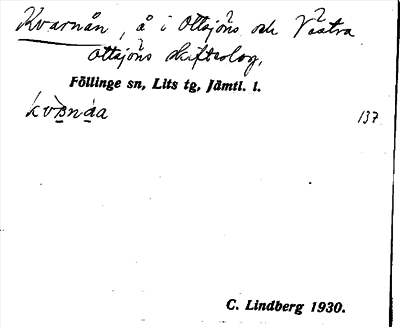 Kvarnån, å i Ottsjöns och Västra
Ottsjöns skifteslag,
Föllinge sn, Lits tg, Jämtl. l.
137
C. Lindberg 1930.